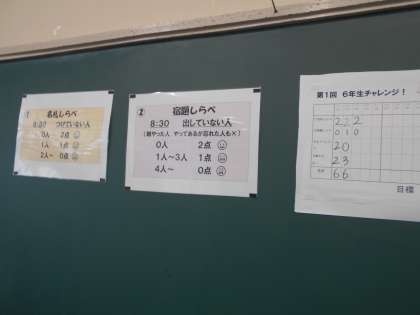 1
名札しらべ
8:30 つけていない人
0人 2点
1人 1点
2人〜 0点
2
宿題しらべ
8:30 出していない人
0人 2点
1人〜3人 1点
4人〜 0点
第1回 6年生チャレンジ!
2 2 2
0 1 0
20
23
66
目標